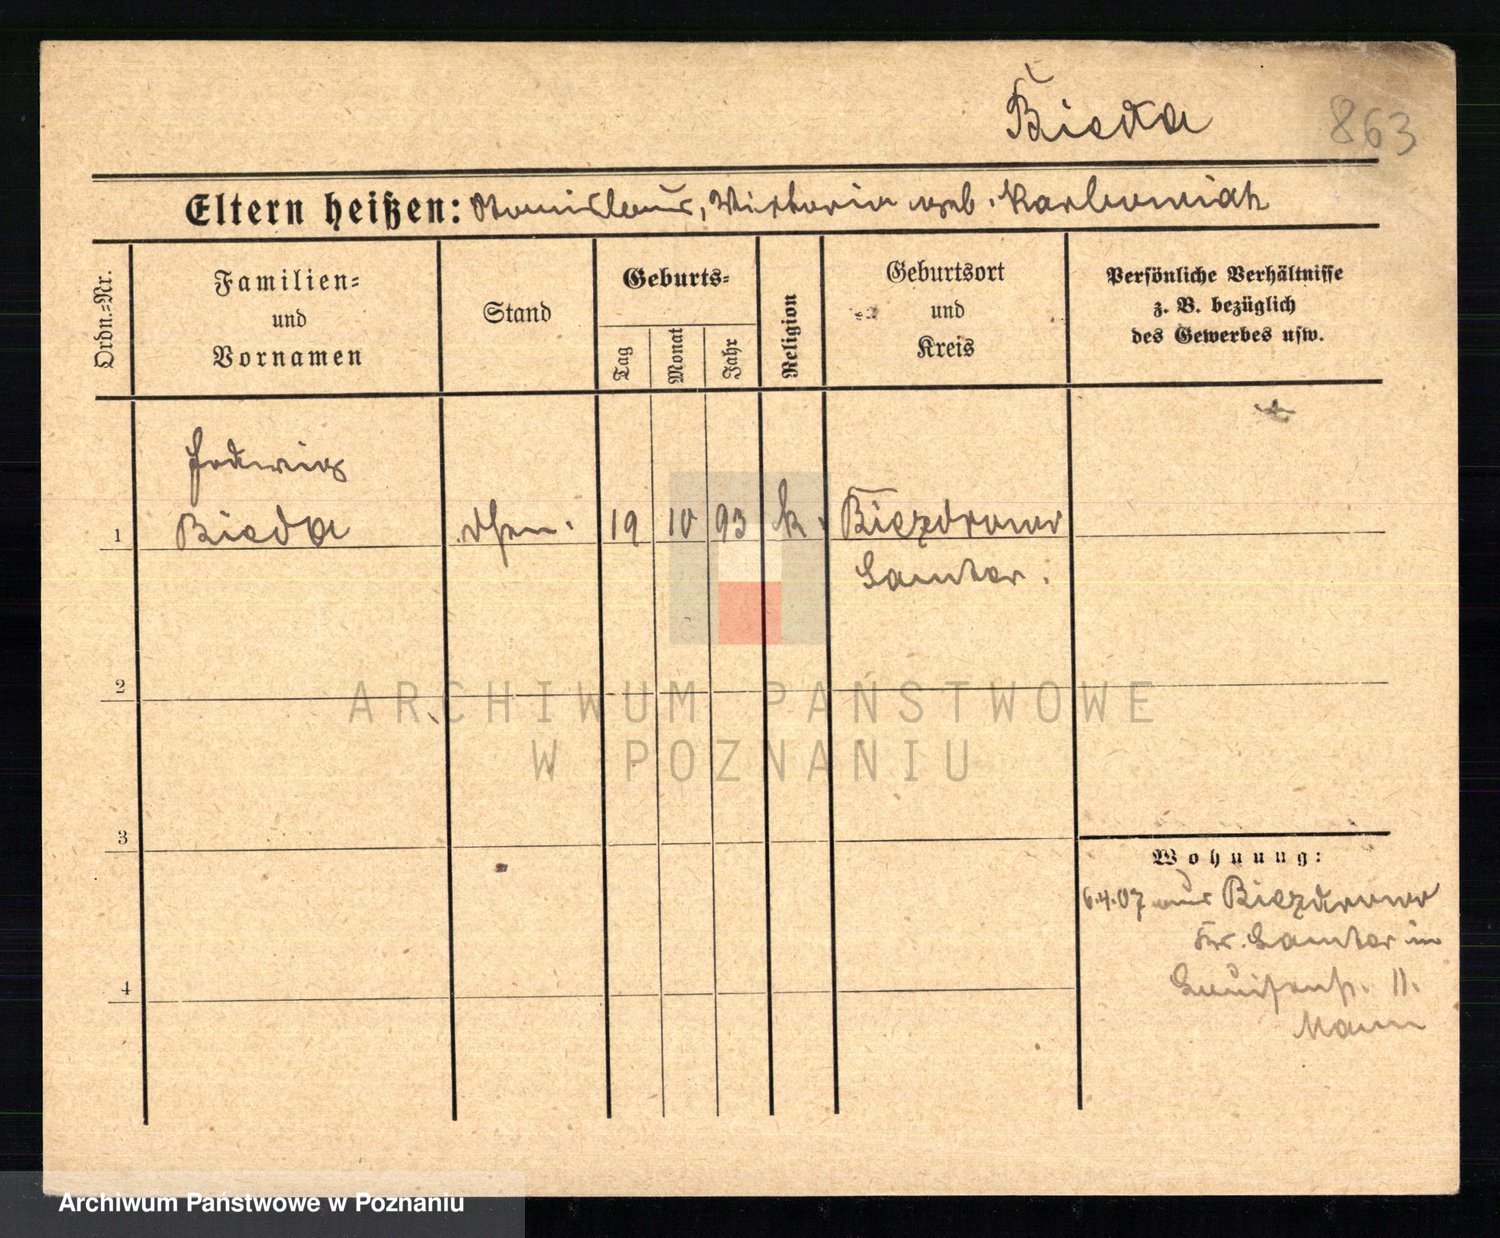 Bieda 863
Eltern heißen: Stanislaus, Viktoria geb. Karbowiak
Ordn.=Nr.
Familien=
und
Vornamen
Stand
Geburts=
Tag
Monat
Jahr
Religion
Geburtsort
und
Kreis
Persönliche Verhältnisse
z. B. bezüglich
des Gewerbes usw.
Hedwig
1 Bieda 19 10 93 k. Biezdrowo
Samter.
2
ARCHIWUM PAŃSTWOWE
W POZNANIU
3
Wohnung:
6.4.07 aus Biezdrowo
Kr. Samter in
4
Louisenstr. 11.
Mann
Archiwum Państwowe w Poznaniu